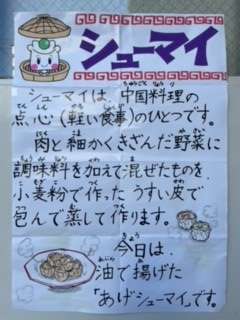 シューマイ
シューマイは、中国料理の
点心(軽い食事)のひとつです。
肉と細かくきざんだ野菜に
調味料を加えて混ぜたものを、
小麦粉で作ったうすい皮で
包んで蒸して作ります。
今日は、
油で揚げた
「あげシューマイ」です。